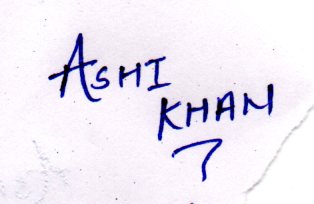 ASHI
KHAN
?